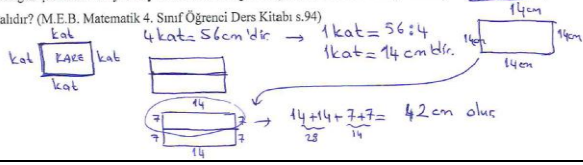 alıdır? (M.E.B. Matematik 4. Sınıf Öğrenci Ders Kitabı s.94)
kat
kat KARE kat
kat
4 kat = 56 cm'dir → 1 kat = 56 : 4
1 kat = 14 cm'dir.
14cm
14cm 14cm
14cm
14
7 7
7 7
14
→ 14+14+7+7= 42 cm oluş
28 14